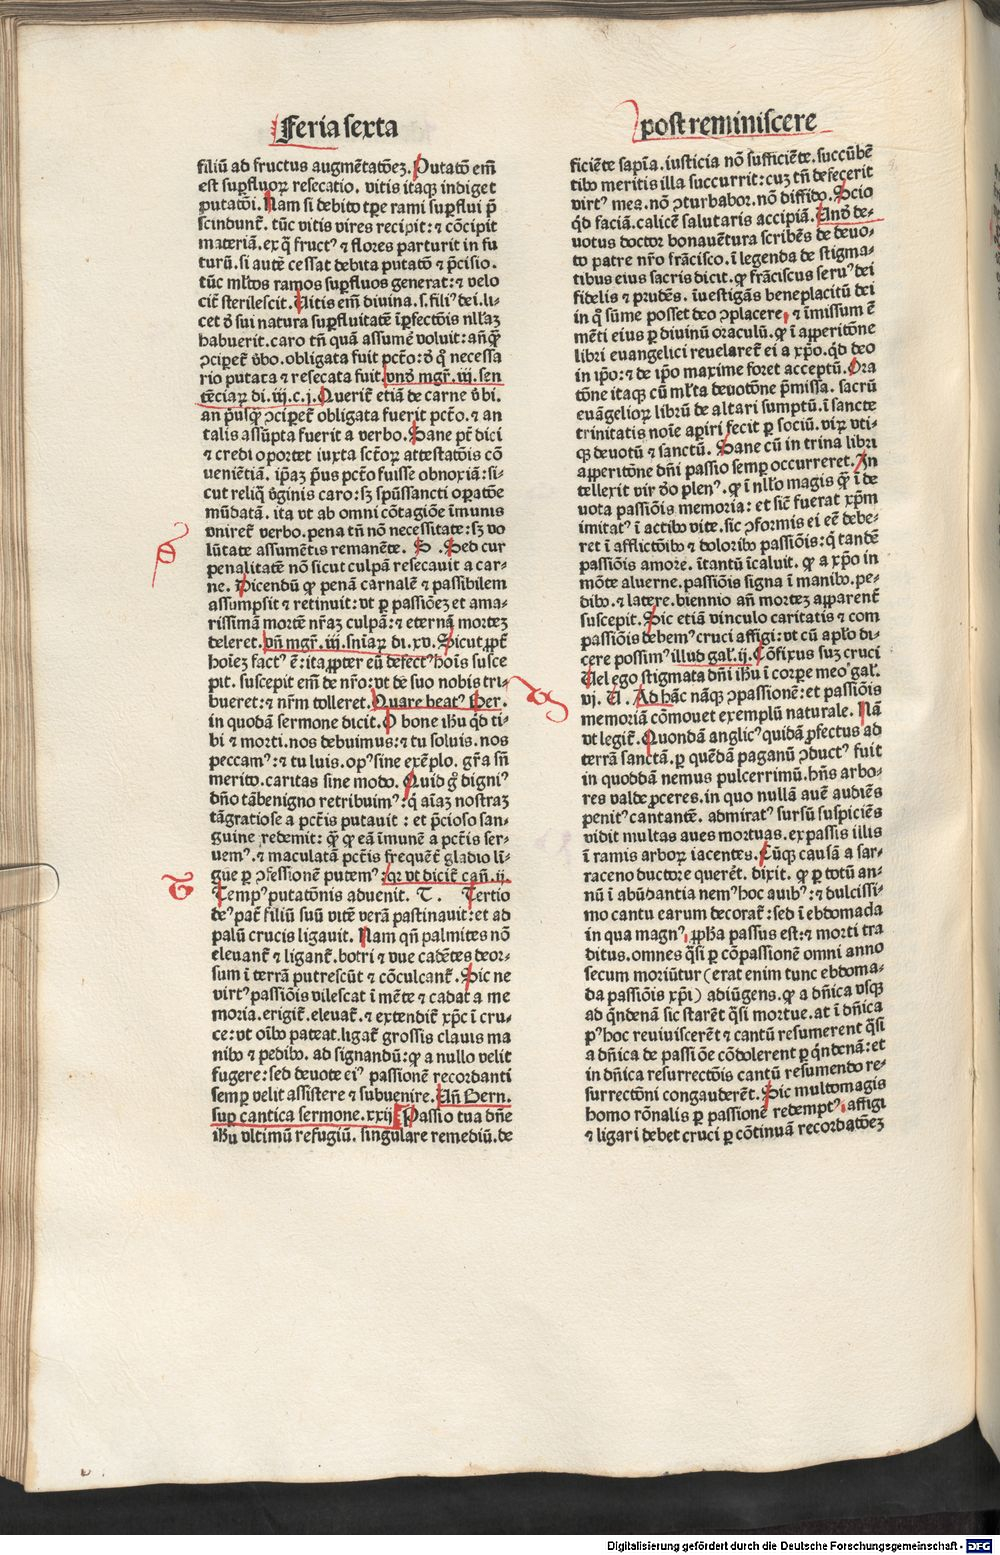 Feria sexta
filiū ad fructus augmētatōeʒ. Putatō em̄
est sup̄fluoꝝ resecatio. vitis itaqꝫ indiget
ꝓutatōi. Nam si debito tꝑe rami sup̄flui p̄
scindunt᷑. tūc vitis vires recipit: ⁊ cōcipit
materiā. ex q̄ fruct⁹ ⁊ flores parturit in fu
turū. si autē cessat debita putatō ⁊ p̄cisio.
tūc ml̓tos ramos sup̄fluos generat: ⁊ velo
cit᷑ sterilescit. Vitis em̄ divina. s. fili⁹ dei. li-
cet ꝟo sui natura sup̄fluitatē īꝑfectōis nllaꝫ
habuerit. caro tn̄ quā assume᷑ voluit: an̄q̄ꝫ
ↄciperet᷑ v̄bo. obligata fuit pctō: ꝟo q̄ necessa
rio putata ⁊ resecata fuit. vnꝟ mgr̄. iij. sen
tēciaꝝ di. iij. c. j. Querit᷑ etiā de carne v̄bi.
an p̄usqꝫ ↄciperet᷑ obligata fuerit pctō. ⁊ an
talis assūpta fuerit a verbo. Sane pt̄ dici
⁊ credi oportet iuxta sct̄oꝝ attestatōis cō
venientiā. ip̄aꝫ p̄us pctō fuisse obnoxiā: si-
cut reliq̄ v̄ginis caro: sꝫ sp̄ussancti oꝑatōe
mūdatā. ita vt ab omni cōtagiōe īmunis
vniret᷑ verbo. pena tn̄ nō necessitate: sꝫ vo
lūtate assumētis remanēte. S. Sed cur
penalitatē nō sicut culpā resecauit a car-
ne. Dicendū ꝙ penā carnalē ⁊ passibilem
assumpsit ⁊ retinuit: vt ꝑ passiōeʒ et ama-
rissimā mortē nr̄aʒ culpā: ⁊ eternā mortez
deleret. vn̄ mgr̄. iij. sniaꝝ di. xv. Sicut ꝓpt̄
hoīeʒ fact⁹ ē: ita ꝓpter eū defect⁹ hoīs susce
pit. suscepit em̄ de nr̄o: vt de suo nobis tri-
bueret: ⁊ nr̄m tolleret. Quare beat⁹ Ber.
in quodā sermone dicit. O bone ih̄u qd̄ ti-
bi ⁊ morti. nos debuimus: ⁊ tu soluis. nos
peccam⁹: ⁊ tu luis. op⁹ sine exēplo. gr̄a sn̄
merito. caritas sine modo. Quid g̊ digni⁹
dn̄o tābenigno retribuim⁹: q̄ aīaʒ nostraʒ
tāgratiose a pctīs putauit: et p̄cioso san-
guine redemit: qꝫ q̄ eā īmunē a pctīs ser-
uem⁹. ⁊ maculatā pctīs frequēt᷑ gladio lī-
gue ꝑ ↄfessionē putem⁹: qꝛ vt dicit᷑ can̄. ij.
Temp⁹ putatōnis aduenit. T. Tertio
de⁹ pat᷑ filiū suū vitē verā pastinauit: et ad
palū crucis ligauit. Nam qn̄ palmites nō
eleuant᷑ ⁊ ligant᷑. botri ⁊ vue cadētes deor-
sum ī terrā putrescūt ⁊ cōculcant᷑. Sic ne
virt⁹ passiōis vilescat ī mēte ⁊ cadat a me
moria. erigit᷑. eleuat᷑. ⁊ extendit᷑ xp̄c ī cru-
ce: vt oībo pateat. ligat᷑ grossis clauis ma
nibo ⁊ pedibo. ad signandū: ꝙ a nullo velit
fugere: sed deuote ei⁹ passionē recordanti
semꝑ velit assistere ⁊ subuenire. Un̄ Bern.
suꝑ cantica sermone. xxij. Passio tua dn̄e
ih̄u vltimū refugiū. singulare remediū. de
post reminiscere
ficiēte sapīa. iusticia nō sufficiēte. succūbē
tibo meritis illa succurrit: cuʒ tn̄ defecerit
virt⁹ mea. nō ↄturbabor. nō diffido. Scio
qd̄ faciā. calicē salutaris accipiā. Unꝟ de-
uotus doctor bonauētura scribēs de deuo-
to patre nr̄o frācisco. ī legenda de stigma-
tibus eius sacris dicit. ꝙ frāciscus seru⁹ dei
fidelis ⁊ prudēs. īuestigās beneplacitū dei
in q̄ sūme posset deo ↄplacere, ⁊ īmissum ē
mēti eius ꝑ divinū oraculū. ꝙ ī aꝑperitōne
libri euangelici reuelaret᷑ ei a xp̄o. qd̄ deo
in ip̄o: ⁊ de ip̄o maxime foret acceptū. Ora
tōne itaqꝫ cū ml̓ta deuotōne p̄missa. sacrū
euāgelioꝝ librū de altari sumptū. ī sancte
trinitatis noīe aꝑiri fecit ꝑ sociū. viꝝ vti-
qꝫ deuotū ⁊ sanctū. Sane cū in trina libri
aꝑperitōne dn̄i passio semꝑ occurreret. In
tellexit vir ꝟo plen⁹. ꝙ ī nll̓o magis qꝫ ī de
uota passiōis memoria: et sic᷑ fuerat xp̄m
imitat⁹ ī actibo vite. sic ↄformis ei eē debe-
ret ī afflictōibo ⁊ doloribo passiōis: q̄ tandē
passiōis amore. ītantū īcaluit. ꝙ a xp̄o in
mōte aluerne. passiōis signa ī manibo. pe-
dibo. ⁊ latere. biennio an̄ mortez apparent᷑
suscepit. Sic etiā vinculo caritatis ⁊ com
passiōis debem⁹ cruci affigi: vt cū apl̓o di-
cere possim⁹ illud gal̓. ij. Cōfixus suʒ cruci
Vel ego stigmata dn̄i ih̄u ī corpe meo gal̓.
vj. V. Ad hāc nāqꝫ ↄpassionē: et passiōis
memoriā cōmouet exemplū naturale. Nā
vt legit᷑. Quondā anglic⁹ quidā ꝓfectus ad
terrā sanctā. ꝑ quēdā paganū ↄduct⁹ fuit
in quoddā nemus pulcerrimū. hn̄s arbo-
res valde ꝓceres. in quo nullā auē audiēs
penit⁹ cantantē. admirat⁹ sursū suspiciēs
vidit multas aues mortuas. expassis illis
ī ramis arboꝝ iacentes. Cūqꝫ causā a sar-
raceno ductore querēt. dixit. ꝙ ꝑ totū an-
nū ī abūdantia nem⁹ hoc auib⁹: ⁊ dulcissi-
mo cantu earum decorat᷑: sed ī ebdomada
in qua magn⁹, ꝓpl̓ia passus est: ⁊ morti tra
ditus. omnes q̄si ꝑ cōpassionē omni anno
secum moriūtur (erat enim tunc ebdoma-
da passiōis xp̄i) adiūgens. ꝙ a dn̄ica vsqꝫ
ad qn̄denā sic starēt q̄si mortue. at ī dn̄ica
p⁹ hoc reuiuiscerēt ⁊ cantū resumerent q̄si
a dn̄ica de passiōe cōdolerent ꝑ qn̄denā: et
in dn̄ica resurrectōis cantū resumendo re-
surrectōni congauderēt. Sic multomagis
homo rōnalis ꝑ passionē redempt⁹, affigi
⁊ ligari debet cruci ꝑ cōtinuā recordatōez
Digitalisierung gefördert durch die Deutsche Forschungsgemeinschaft - DFG